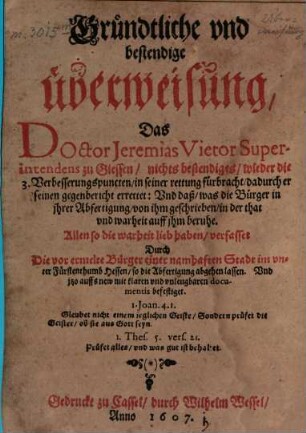 Gründtliche vnd
bestendige
überweisung,
Das
Doctor Jeremias Vietor Super-
intendens zu Giessen/ nichts bestendiges/ wieder die
3. Verbesserungspuncten/ in seiner rettung fürbracht/ dadurch er
seinen gegenbericht errettet: Vnd daß/ was die Bürger in
ihrer Abfertigung/ von ihm geschrieben/ in der that
vnd warheit auff ihm beruhe.
Allen so die warheit lieb haben/ verfasset
Durch
Die vor ermelte Bürger einer namhafften Stadt im vn-
ter Fürstenthumb Hessen/ so die Abfertigung abgehen lassen. Vnd
jtzo auffs new mit klaren vnd vnleugbaren docu-
mentis befestiget.
1. Joan. 4.1.
Gleubet nicht einem ieglichen Geiste/ Sondern prüfet die
Geister/ ob sie aus Gott seyn.
1. Thes. 5. vers. 21.
Prüfet alles/ vnd was gut ist behaltet.
Gedruckt zu Cassel/ durch Wilhelm Wessel/
Anno 1607.